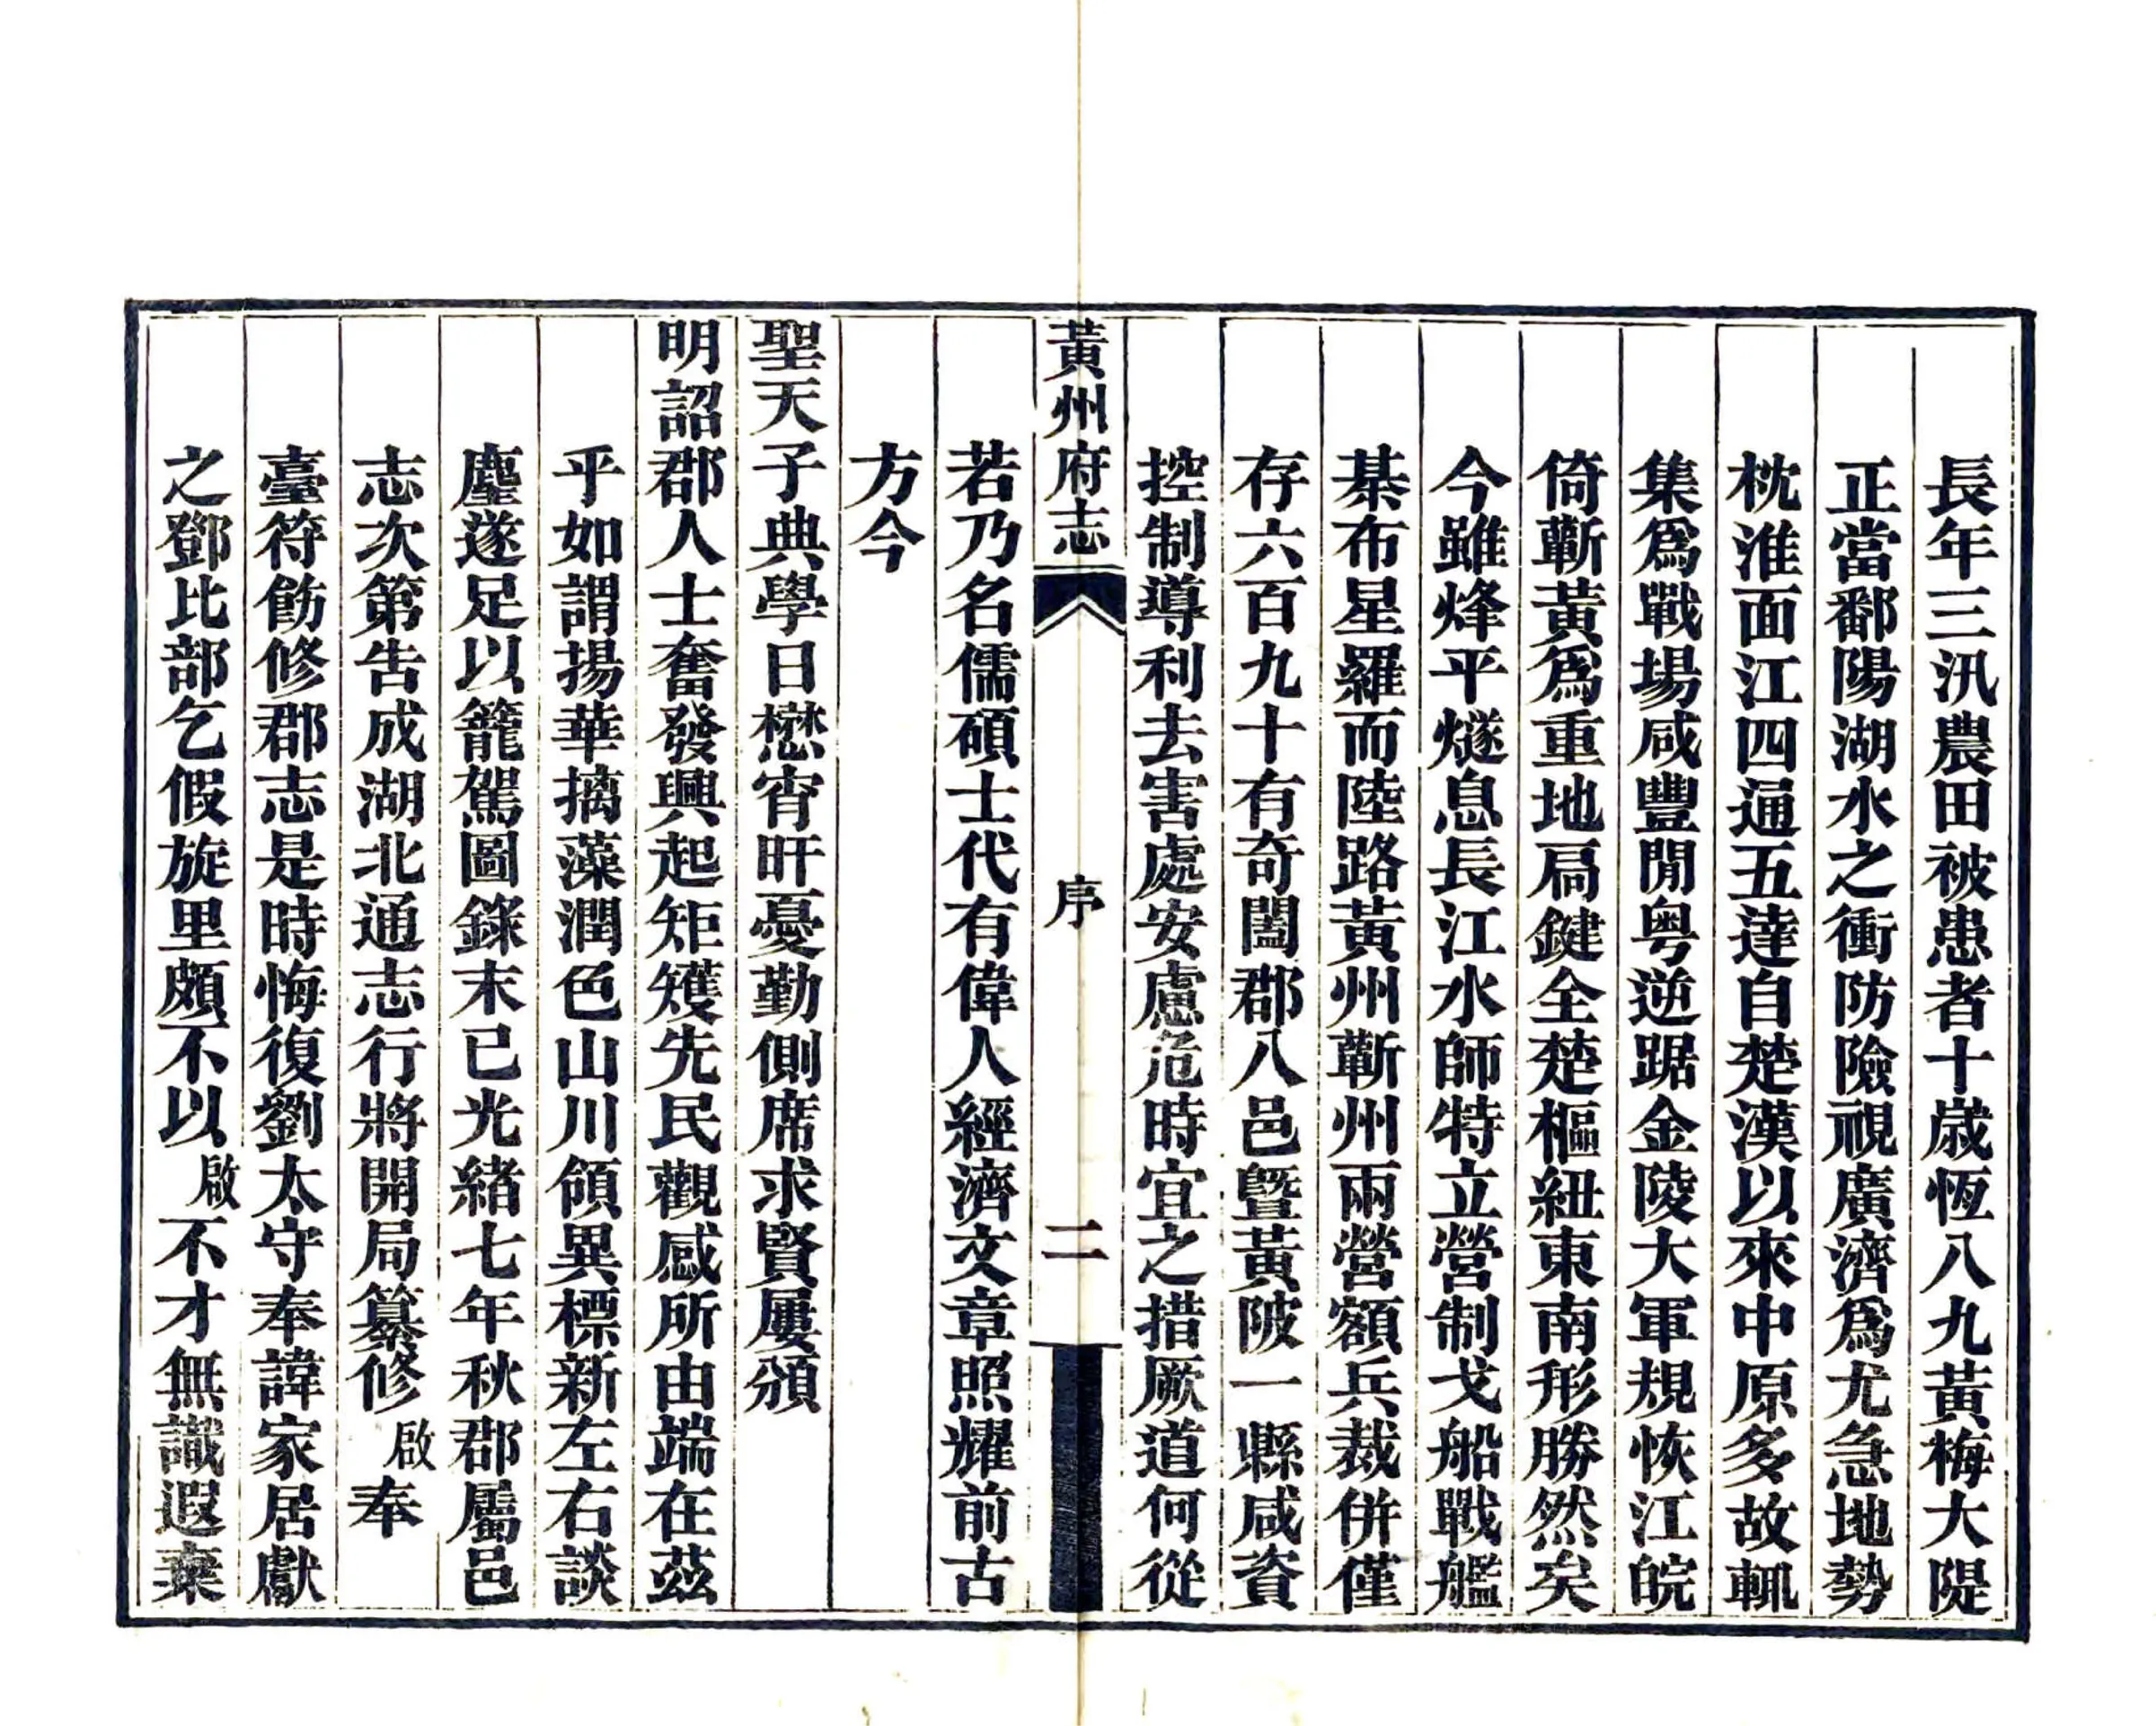 長年三汛農田被患者十歲恆八九黃梅大隄
正當鄱陽湖水之衝防險視廣濟爲尤急地勢
枕淮面江四通五達自楚漢以來中原多故輒
集爲戰場咸豐閒粵逆踞金陵大軍規恢江皖
倚蘄黃爲重地扃鍵全楚樞紐東南形勝然矣
今雖烽平燧息長江水師特立營制戈船戰艦
棊布星羅而陸路黃州蘄州兩營額兵裁併僅
存六百九十有奇闔郡八邑曁黃陂一縣咸資
控制導利去害處安慮危時宜之措厥道何從
黃州府志 序 二
若乃名儒碩士代有偉人經濟文章照耀前古
方今
聖天子典學日懋宵旰憂勤側席求賢屢頒
明詔郡人士奮發興起矩矱先民觀感所由端在茲
乎如謂揚華摛藻潤色山川領異標新左右談
麈遂足以籠駕圖錄末已光緒七年秋郡屬邑
志次第告成湖北通志行將開局纂修啟奉
臺符飭修郡志是時悔復劉太守奉諱家居獻
之鄧比部乞假旋里頗不以啟不才無識遐棄